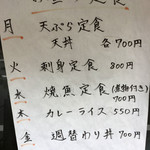 月 天ぷら定食
天丼 各700円
火 刺身定食 800円
水 焼魚定食(煮物付き)
700円
木 カレーライス 550円
金 週替わり丼 700円